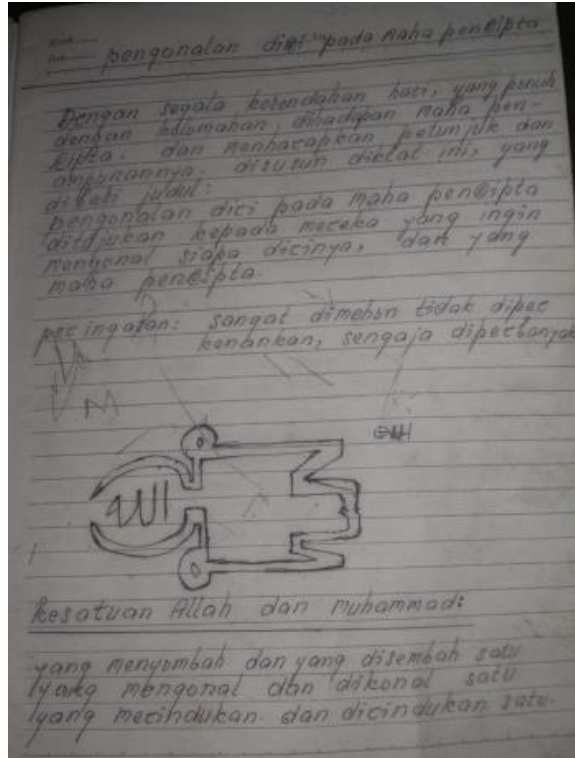 pengonalan diri pada maha pencipta
Dengan segala kerendahan hati, yang penuh
dengan kelomahan, dihadapan maha pen-
cipta. dan menharapkan petunjuk dan
ampunannya, disusun diktat ini, yang
diberi judul:
pengonalan diri pada maha pencipta
ditujukan kepada mereka yang ingin
mengonal siapa dirinya, dan yang
maha pencipta.
peringatan: sangat dimohon tidak diper
kenankan, sengaja diperbanyak
M
الله
kesatuan Allah dan muhammad:
yang menyombah dan yang disembah satu
yang mengonal dan dikonal satu
yang merindukan dan dirindukan satu.